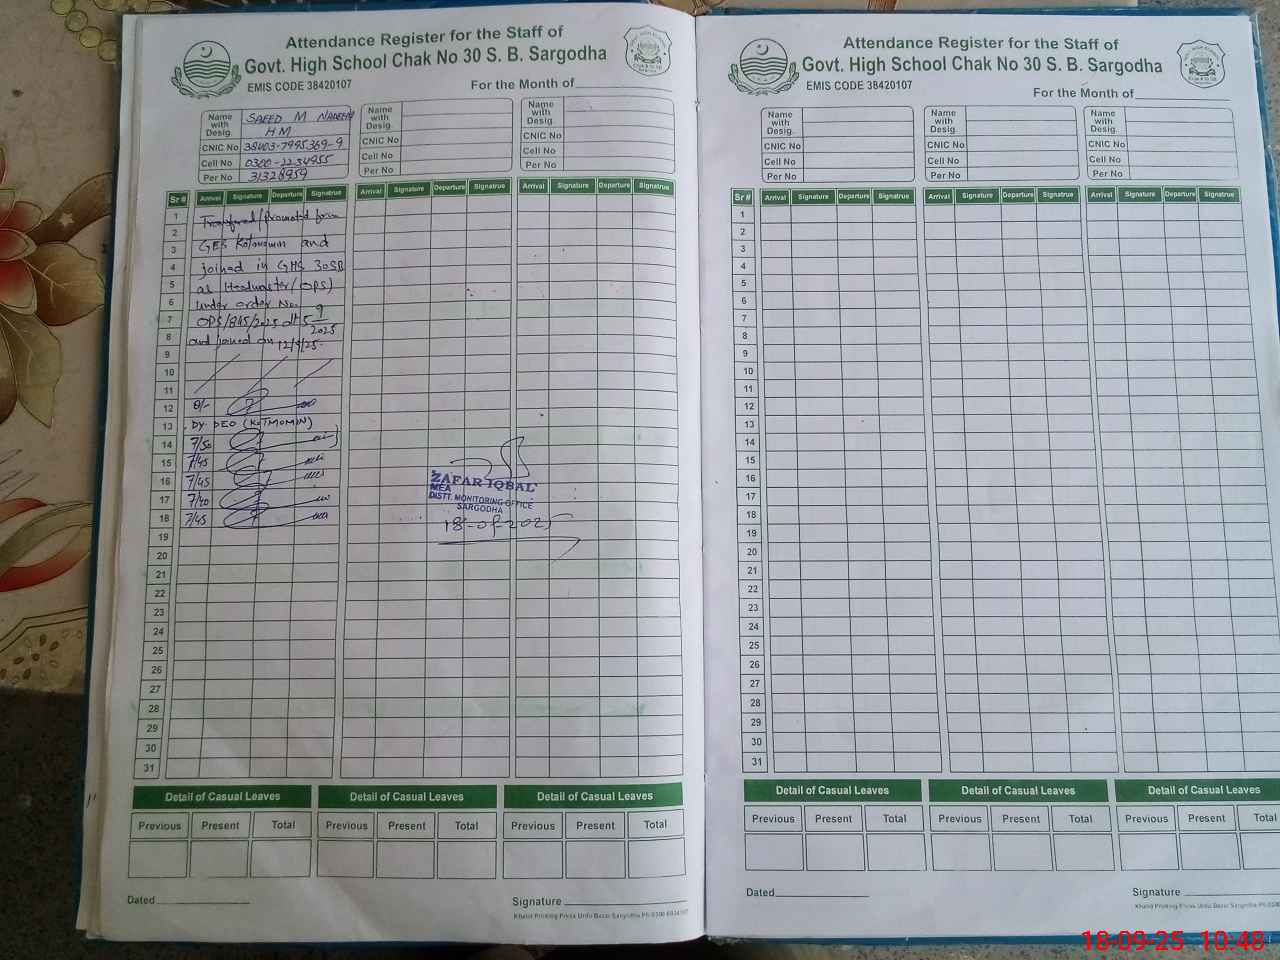 Attendance Register for the Staff of
Govt. High School Chak No 30 S. B. Sargodha
EMIS CODE 38420107
For the Month of
Name with Desig. SAEED M NADEEM
HM
CNIC No 38403-7995369-9
Cell No 0300-
Per No 31328959
Name with Desig.
CNIC No
Cell No
Per No
Name with Desig.
CNIC No
Cell No
Per No
Sr # Arrival Signature Departure Signatrue Arrival Signature Departure Signatrue Arrival Signature Departure Signatrue
1 Transferred/Promoted form
2
3 GES Kotmomin and
4 joined in GHS 30SB
5 as Headmaster/(OPS)
6 under order No.
7 OPS/845/2025 dt 5/9/2025
8 and joined on 12/9/25-
9
10
11
12 8/-
13 DY DEO (KOTMOMIN)
14 7/50
15 7/45
16 7/45
17 7/40
18 7/45
19
20
21
22
23
24
25
26
27
28
29
30
31
ZAFAR IQBAL
MEA
DISTT. MONITORING OFFICE
SARGODHA
18-09-2025
Detail of Casual Leaves Detail of Casual Leaves Detail of Casual Leaves
Previous Present Total Previous Present Total Previous Present Total
Dated
Signature
Khalid Printing Press Urdu Bazar Sargodha
Attendance Register for the Staff of
Govt. High School Chak No 30 S. B. Sargodha
EMIS CODE 38420107
For the Month of
Name with Desig.
CNIC No
Cell No
Per No
Name with Desig.
CNIC No
Cell No
Per No
Name with Desig.
CNIC No
Cell No
Per No
Sr # Arrival Signature Departure Signatrue Arrival Signature Departure Signatrue Arrival Signature Departure Signatrue
1
2
3
4
5
6
7
8
9
10
11
12
13
14
15
16
17
18
19
20
21
22
23
24
25
26
27
28
29
30
31
Detail of Casual Leaves Detail of Casual Leaves Detail of Casual Leaves
Previous Present Total Previous Present Total Previous Present Total
Dated
Signature
Khalid Printing Press Urdu Bazar Sargodha
18-09-25 10:48